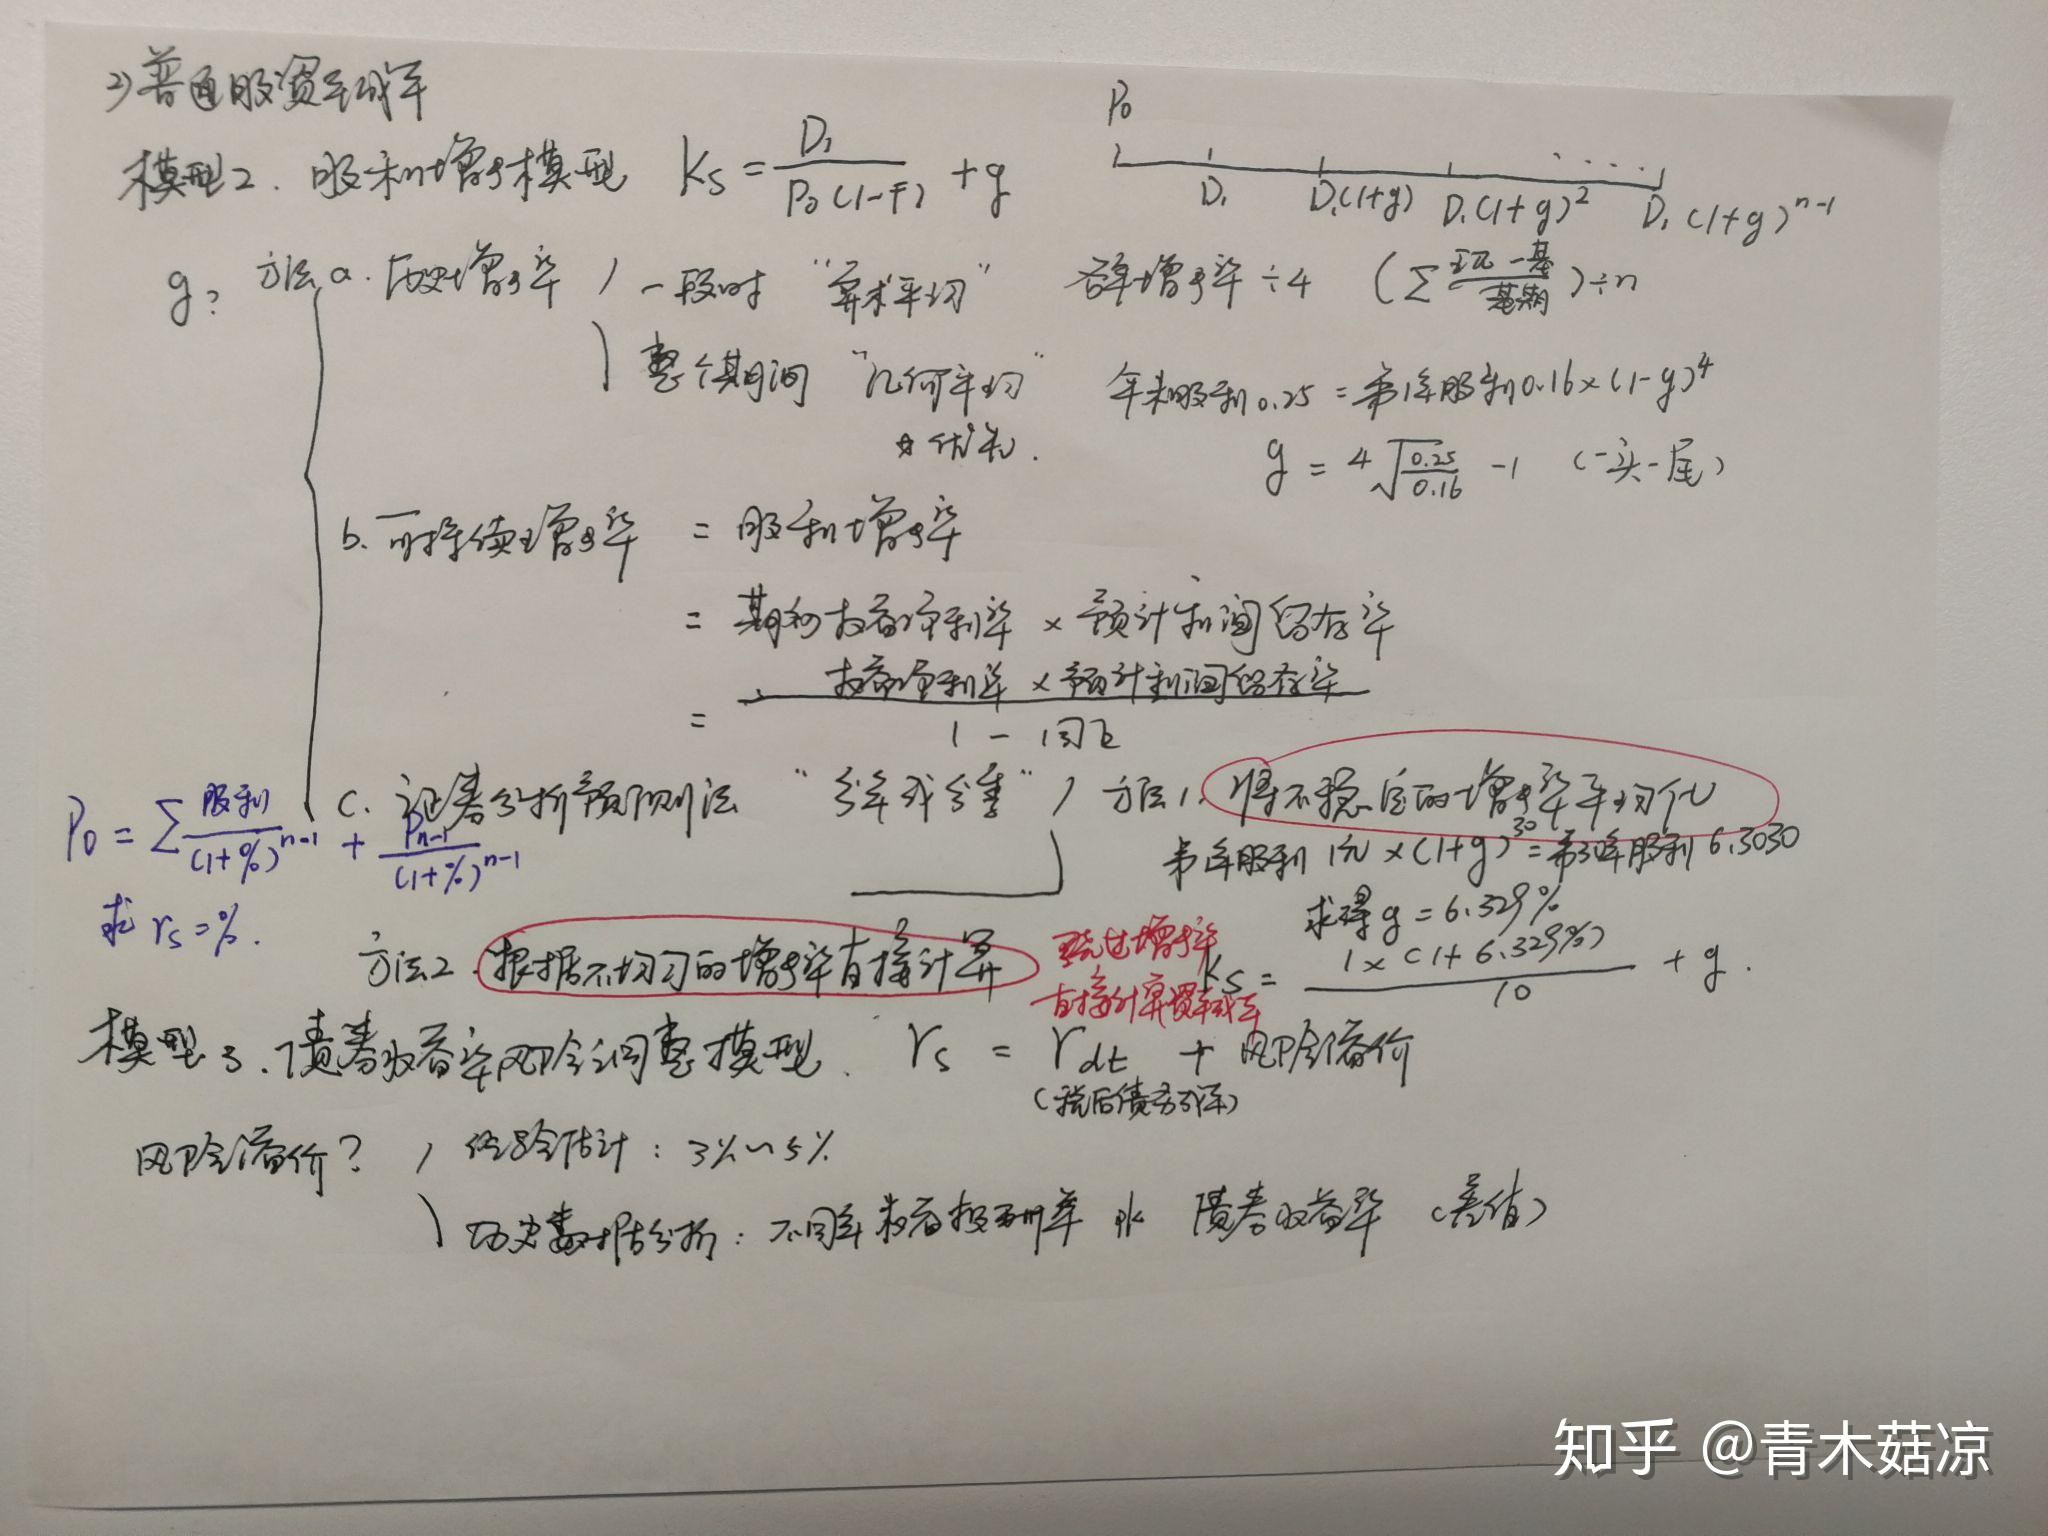 2) 普通股资本成本
模型2. 股利增长模型 Ks = D₁ / P₀(1-F) + g
P₀
D₁ D₁(1+g) D₁(1+g)² ‥‥ D₁(1+g)ⁿ⁻¹
g? 方法 a. 历史增长率 一段时 “算术平均” 各年增长率÷4 (∑ 现-基 / 基期)÷n
整个期间 “几何平均” 年末股利0.25 = 第1年股利0.16×(1-g)⁴
优先.
g = 4√(0.25/0.16) -1 (一头一尾)
b. 可持续增长率 = 股利增长率
= 期初权益净利率 × 预计利润留存率
= 权益净利率 × 预计利润留存率 / 1 - 同上
c. 证券分析预测法 “分年或分季” 方法1. 将不稳定的增长率平均化
第1年股利 1元×(1+g)³⁰ = 第30年股利 6.3030
求得 g = 6.329%
Ks = 1×(1+6.329%) / 10 + g.
P₀ = ∑ 股利 / (1+%)ⁿ⁻¹ + Pₙ₋₁ / (1+%)ⁿ⁻¹
求 rs = %.
方法2. 根据不均匀的增长率直接计算
增长率
直接计算资本成本
模型3. 债券收益率风险调整模型. rs = rdt + 风险溢价
(税后债务成本)
风险溢价? 经验估计: 3%~5%
历史数据分析: 不同年权益报酬率 pk 债券收益率 (差值)
知乎 @青木菇凉